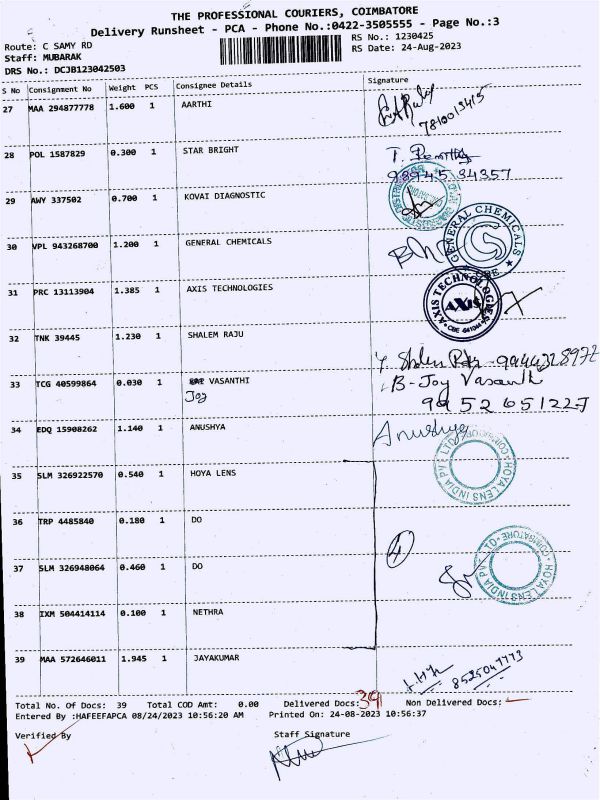 THE PROFESSIONAL COURIERS, COIMBATORE
Delivery Runsheet - PCA - Phone No.:0422-3505555 - Page No.:3
Route: C SAMY RD
RS No.: 1230425
Staff: MUBARAK
RS Date: 24-Aug-2023
DRS No.: DCJB123042503
S No Consignment No Weight PCS Consignee Details Signature
27 MAA 294877778 1.600 1 AARTHI
7810013415
28 POL 1587829 0.300 1 STAR BRIGHT
98945 34357
29 AWY 337502 0.700 1 KOVAI DIAGNOSTIC
30 VPL 943268700 1.200 1 GENERAL CHEMICALS
GENERAL CHEMICALS
CBE
31 PRC 13113904 1.385 1 AXIS TECHNOLOGIES
AXIS TECHNOLOGIES
AXIS
32 TNK 39445 1.230 1 SHALEM RAJU
33 TCG 40599864 0.030 1 VASANTHI
Joy
B-Joy Vasanth
9952651227
34 EDQ 15908262 1.140 1 ANUSHYA
Anushya
35 SLM 326922570 0.540 1 HOYA LENS
HOYA LENS INDIA PVT LTD COIMBATORE
36 TRP 4485840 0.180 1 DO
4
37 SLM 326948064 0.460 1 DO
HOYA LENS INDIA PV LTD COIMBATORE
38 IXM 504414114 0.100 1 NETHRA
39 MAA 572646011 1.945 1 JAYAKUMAR
8525047773
Total No. Of Docs: 39 Total COD Amt: 0.00 Delivered Docs: 39 Non Delivered Docs:
Entered By :HAFEEFAPCA 08/24/2023 10:56:20 AM Printed On: 24-08-2023 10:56:37
Verified By Staff Signature